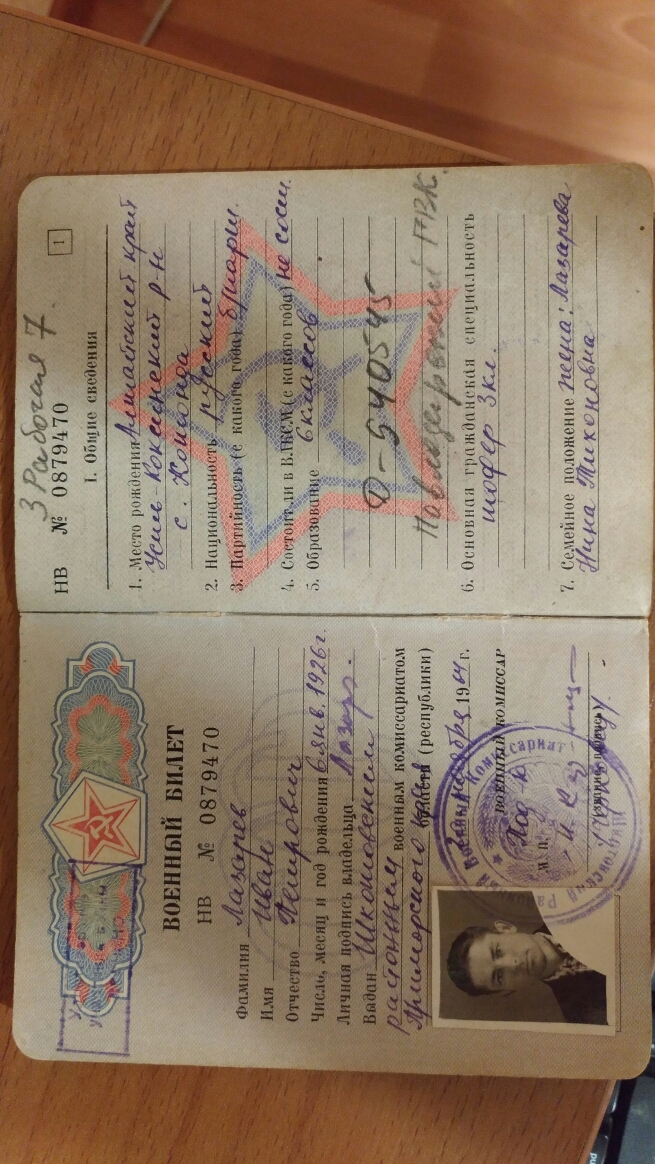 ВОЕННЫЙ БИЛЕТ
НВ № 0879470
Фамилия Лазарев
Имя Иван
Отчество Петрович
Число, месяц и год рождения 6 янв. 1926г.
Личная подпись владельца Лазарев.
Выдан Шкотовским
районным военным комиссариатом
Приморского края области (республики)
ноября 1964 г.
ВОЕННЫЙ КОМИССАР
М. П.
3 Рабочая 7
НВ № 0879470
1
I. Общие сведения
1. Место рождения Алтайский край
Усть-Коксинский р-н
с.
2. Национальность русский
3. Партийность (с какого года) б/парт.
4. Состоит ли в ВЛКСМ (с какого года) не сост.
5. Образование 6 классов
Ф-540545
ГВК.
6. Основная гражданская специальность
шофер 3 кл.
7. Семейное положение жена: Лазарева
Нина Тихоновна